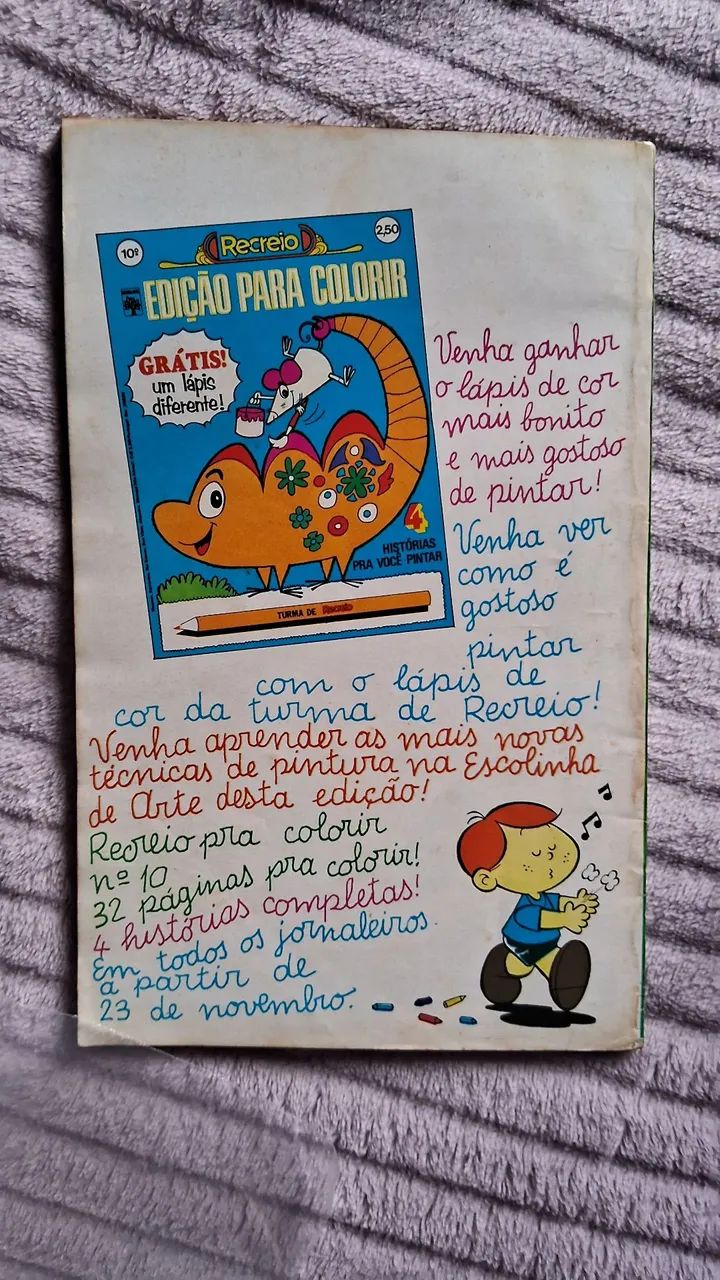 10º
Recreio
2,50
EDIÇÃO PARA COLORIR
GRÁTIS!
um lápis
diferente!
4
HISTÓRIAS
PRA VOCÊ PINTAR
TURMA DE Recreio
Venha ganhar
o lápis de cor
mais bonito
e mais gostoso
de pintar!
Venha ver
como é
gostoso
pintar
com o lápis de
cor da turma de Recreio!
Venha aprender as mais novas
técnicas de pintura na Escolinha
de Arte desta edição!
Recreio pra colorir
nº 10
32 páginas pra colorir!
4 histórias completas!
Em todos os jornaleiros
a partir de
23 de novembro.